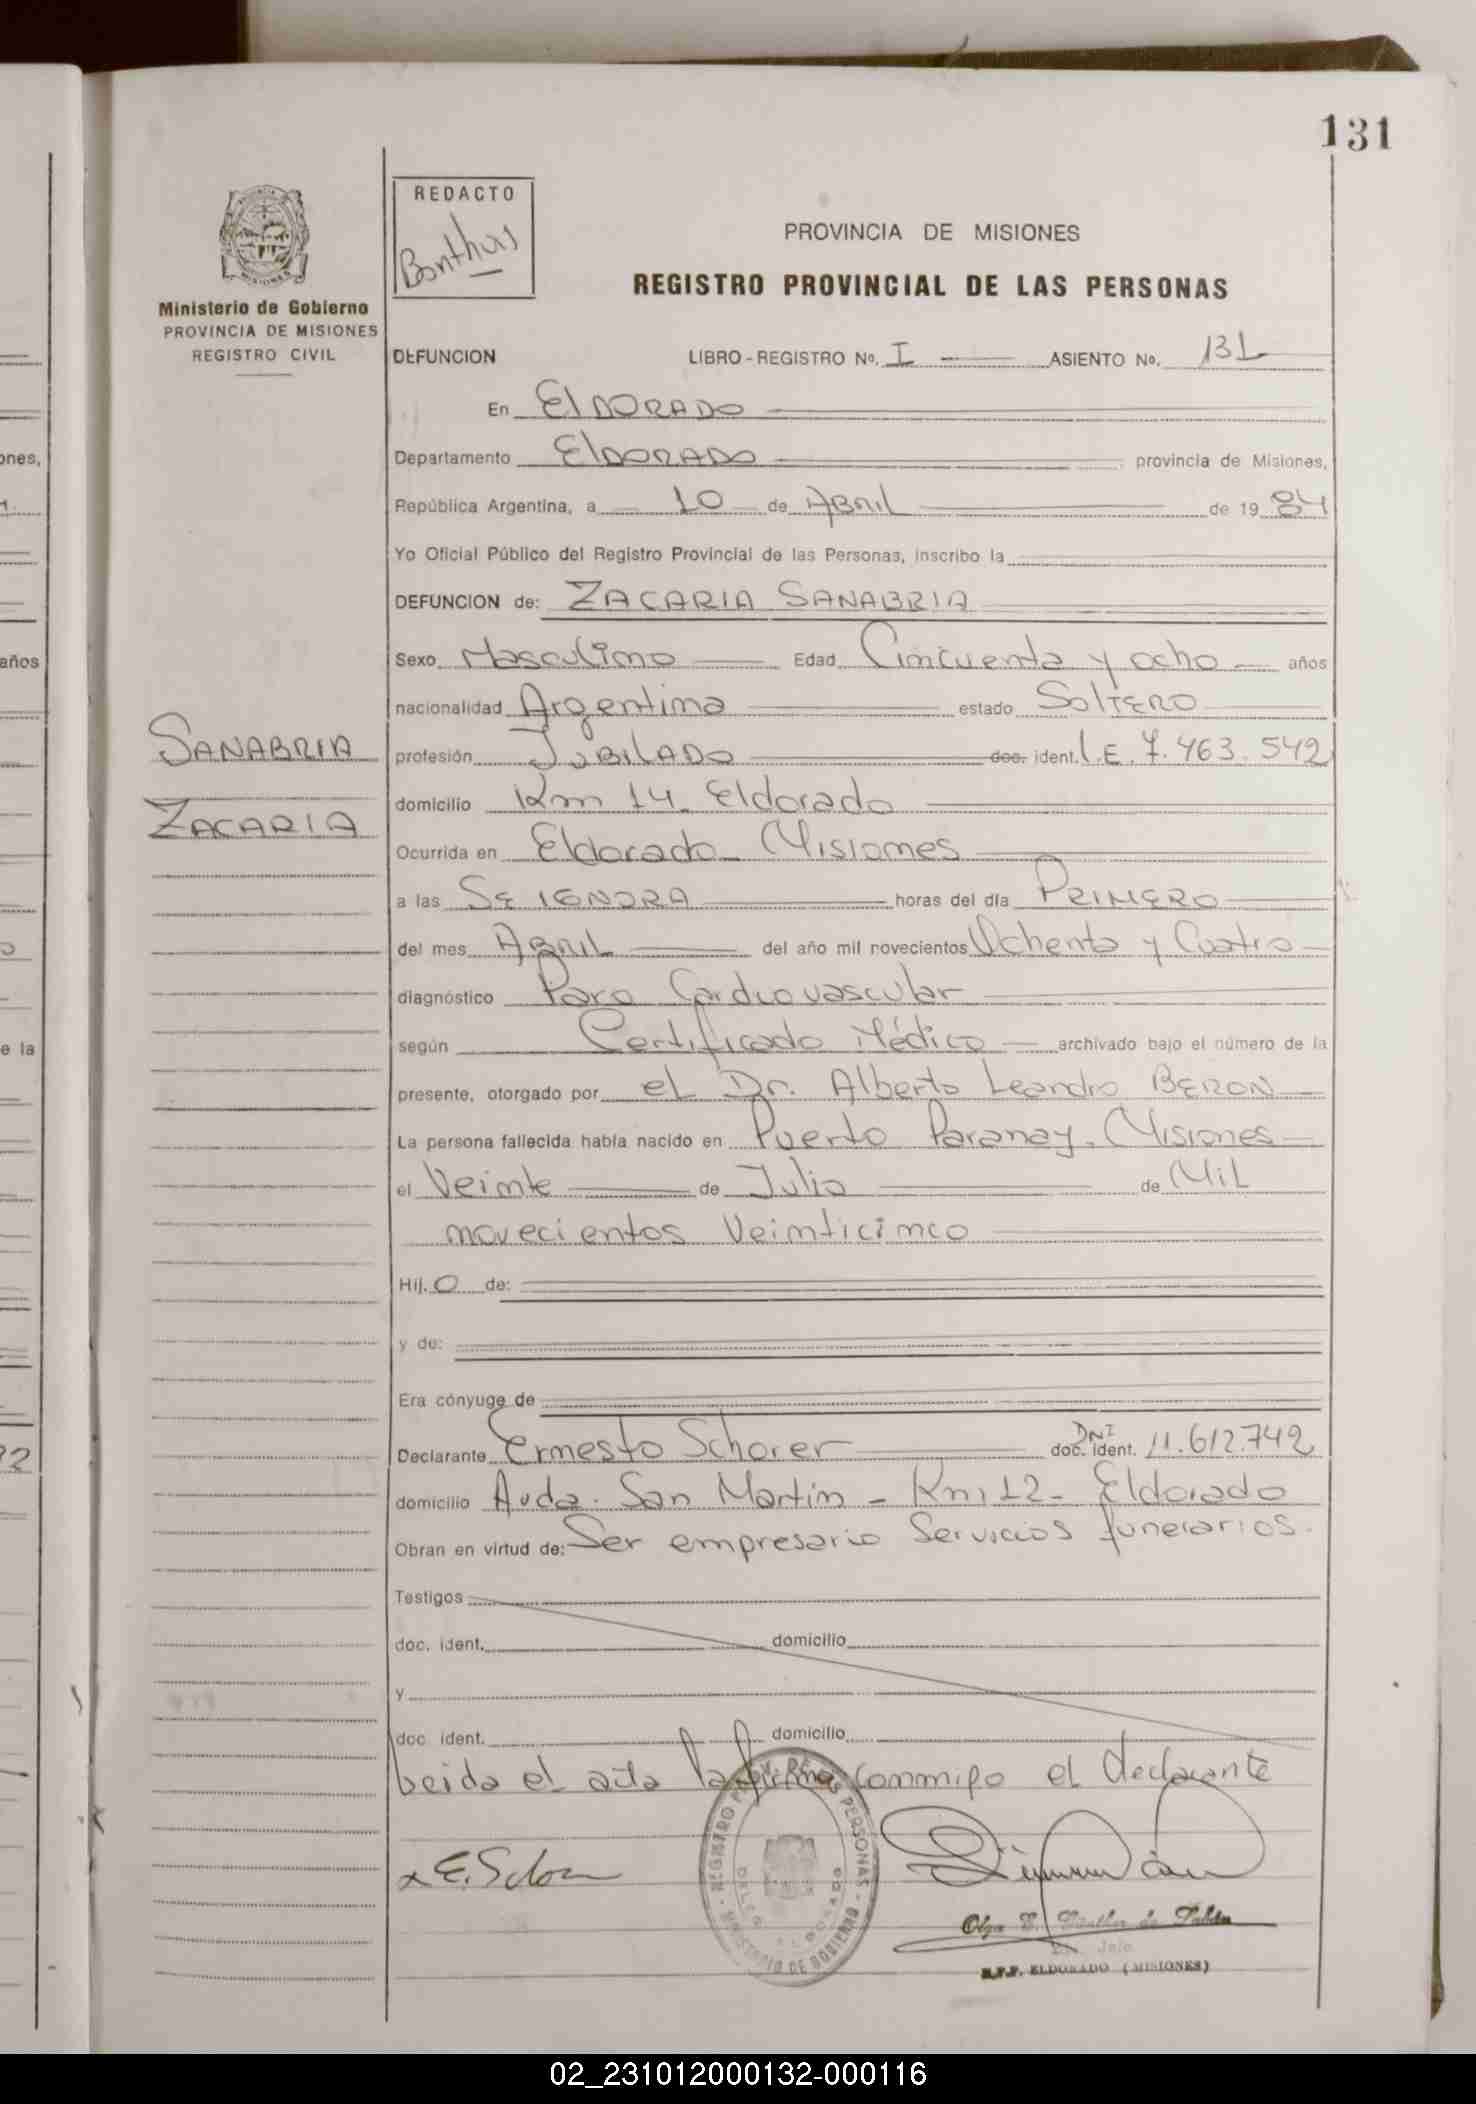 131
REDACTO
Bonthuis
PROVINCIA DE MISIONES
REGISTRO PROVINCIAL DE LAS PERSONAS
Ministerio de Gobierno
PROVINCIA DE MISIONES
REGISTRO CIVIL
DEFUNCION LIBRO - REGISTRO Nº. I ASIENTO Nº. 131
En ElDORADO
Departamento ElDORADO provincia de Misiones,
República Argentina, a 10 de ABRIL de 19 84
Yo Oficial Público del Registro Provincial de las Personas, inscribo la
DEFUNCION de: ZACARIA SANABRIA
Sexo Masculino Edad Cincuenta y ocho años
nacionalidad Argentina estado SOLTERO
SANABRIA
profesión JUBILADO doc. ident. L.E. 7.463.542
ZACARIA
domicilio Km 14. Eldorado
Ocurrida en Eldorado Misiones
a las SE IGNORA horas del día PRIMERO
del mes ABRIL del año mil novecientos Ochenta y Cuatro
diagnóstico Paro Cardiovascular
según Certificado Médico archivado bajo el número de la
presente, otorgado por el Dr. Alberto Leandro BERON
La persona fallecida había nacido en Puerto Paranay. Misiones
el Veinte de Julio de Mil
novecientos Veinticinco
Hij. O de:
y de:
Era cónyuge de
Declarante Ernesto Schorer doc. ident. DNI 11.612.742
domicilio Avda. San Martin - Km 12 - Eldorado
Obran en virtud de: Ser empresario Servicios funerarios.
Testigos
doc. ident. domicilio
y
doc. ident. domicilio
Leida el acta la firma conmigo el declarante
REGISTRO DE LAS PERSONAS
MINISTERIO DE GOBIERNO
ELDORADO
x E. Schor
Olga de
Jefe
R.P.P. ELDORADO (MISIONES)
02_231012000132-000116